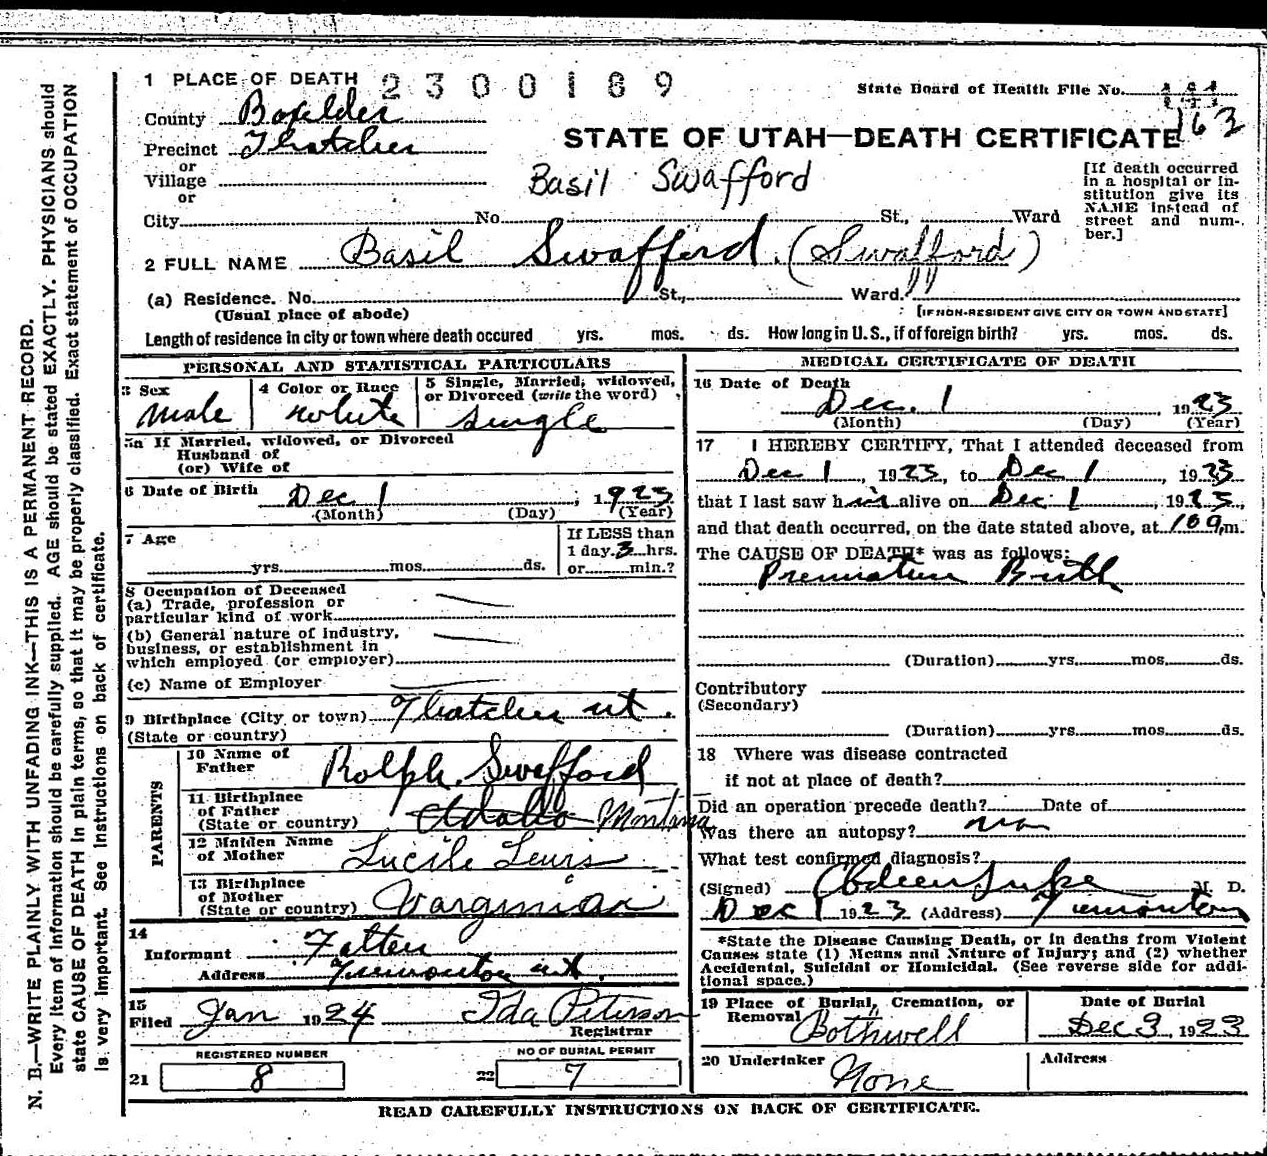 N. B.—WRITE PLAINLY WITH UNFADING INK—THIS IS A PERMANENT RECORD.
Every item of information should be carefully supplied. AGE should be stated EXACTLY. PHYSICIANS should
state CAUSE OF DEATH in plain terms, so that it may be properly classified. Exact statement of OCCUPATION
is very important. See instructions on back of certificate.
1 PLACE OF DEATH 2300169
State Board of Health File No. 163
County Boxelder
Precinct Thatcher
STATE OF UTAH—DEATH CERTIFICATE
or
Village
or
Basil Swafford
[If death occurred
in a hospital or in-
stitution give its
NAME instead of
street and num-
ber.]
City No. St., Ward
2 FULL NAME Basil Swafford. (Swafford)
(a) Residence. No. St., Ward.
(Usual place of abode) [IF NON-RESIDENT GIVE CITY OR TOWN AND STATE]
Length of residence in city or town where death occured yrs. mos. ds. How long in U.S., if of foreign birth? yrs. mos. ds.
PERSONAL AND STATISTICAL PARTICULARS
3 Sex 4 Color or Race 5 Single, Married, widowed,
or Divorced (write the word)
male white single
5a If Married, widowed, or Divorced
Husband of
(or) Wife of
6 Date of Birth Dec 1, 1923
(Month) (Day) (Year)
7 Age If LESS than
1 day. 3 hrs.
yrs. mos. ds. or min.?
8 Occupation of Deceased
(a) Trade, profession or
particular kind of work
(b) General nature of industry,
business, or establishment in
which employed (or employer)
(c) Name of Employer
9 Birthplace (City or town) Thatcher ut.
(State or country)
PARENTS
10 Name of
Father Rolph. Swafford
11 Birthplace
of Father
(State or country) Idaho Montana
12 Maiden Name
of Mother Lucile Lewis
13 Birthplace
of Mother
(State or country)
14
Informant Father
Address Tremonton ut.
15
Filed Jan 1924 Ida Peterson
Registrar
REGISTERED NUMBER NO OF BURIAL PERMIT
21 8 22 7
MEDICAL CERTIFICATE OF DEATH
16 Date of Death
Dec. 1, 1923
(Month) (Day) (Year)
17 I HEREBY CERTIFY, That I attended deceased from
Dec 1, 1923, to Dec 1, 1923
that I last saw him alive on Dec 1, 1923,
and that death occurred, on the date stated above, at m.
The CAUSE OF DEATH* was as follows:
Premature Birth
(Duration) yrs. mos. ds.
Contributory
(Secondary)
(Duration) yrs. mos. ds.
18 Where was disease contracted
if not at place of death?
Did an operation precede death? Date of
Was there an autopsy? no
What test confirmed diagnosis?
(Signed) M. D.
Dec 1 1923 (Address) Tremonton
*State the Disease Causing Death, or in deaths from Violent
Causes state (1) Means and Nature of Injury; and (2) whether
Accidental, Suicidal or Homicidal. (See reverse side for addi-
tional space.)
19 Place of Burial, Cremation, or
Removal Bothwell
Date of Burial
Dec 3, 1923
20 Undertaker None
Address
READ CAREFULLY INSTRUCTIONS ON BACK OF CERTIFICATE.